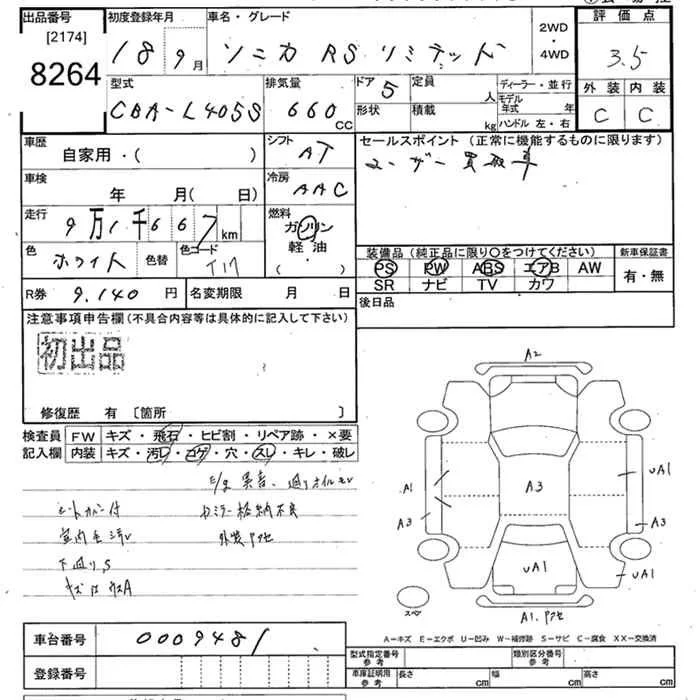 出品番号 初度登録年月 車名・グレード 2WD・4WD 評価点
[2174]
8264 18 9月 ソニカ RS リミテッド 3.5
型式 排気量 ドア 定員 ディーラー・並行 外装 内装
CBA-L405S 660cc 5 人 モデル年式 年 C C
形状 積載 kg ハンドル 左・右
車歴 シフト セールスポイント (正常に機能するものに限ります)
自家用・( ) AT ユーザー買取車
車検 冷房
年 月( 日) AAC
走行 燃料
9万1千667km ガソリン
軽油
( ・ )
色 色替 色コード 装備品(純正品に限り○をつけてください) 新車保証書
ホワイト PS PW ABS エアB AW 有・無
SR ナビ TV カワ
R券 9.140円 名変期限 月 日 後日品
注意事項申告欄(不具合内容等は具体的に記入して下さい)
初出品
修復歴 有 〔箇所 〕
検査員 FW キズ・飛石・ヒビ割・リペア跡・×要
記入欄 内装 キズ・汚レ・コゲ・穴・スレ・キレ・破レ
シートカバー付
下廻りS
外装
A2
A1
A3
A3
UA1
A3
UA1
UA1
スペア
A1.
A-キズ E-エクボ U-凹み W-補修跡 S-サビ C-腐食 XX-交換済
車台番号 0009481
登録番号
型式指定番号 参考 類別区分番号 参考
車庫証明用 参考 長さ cm 幅 cm 高さ cm